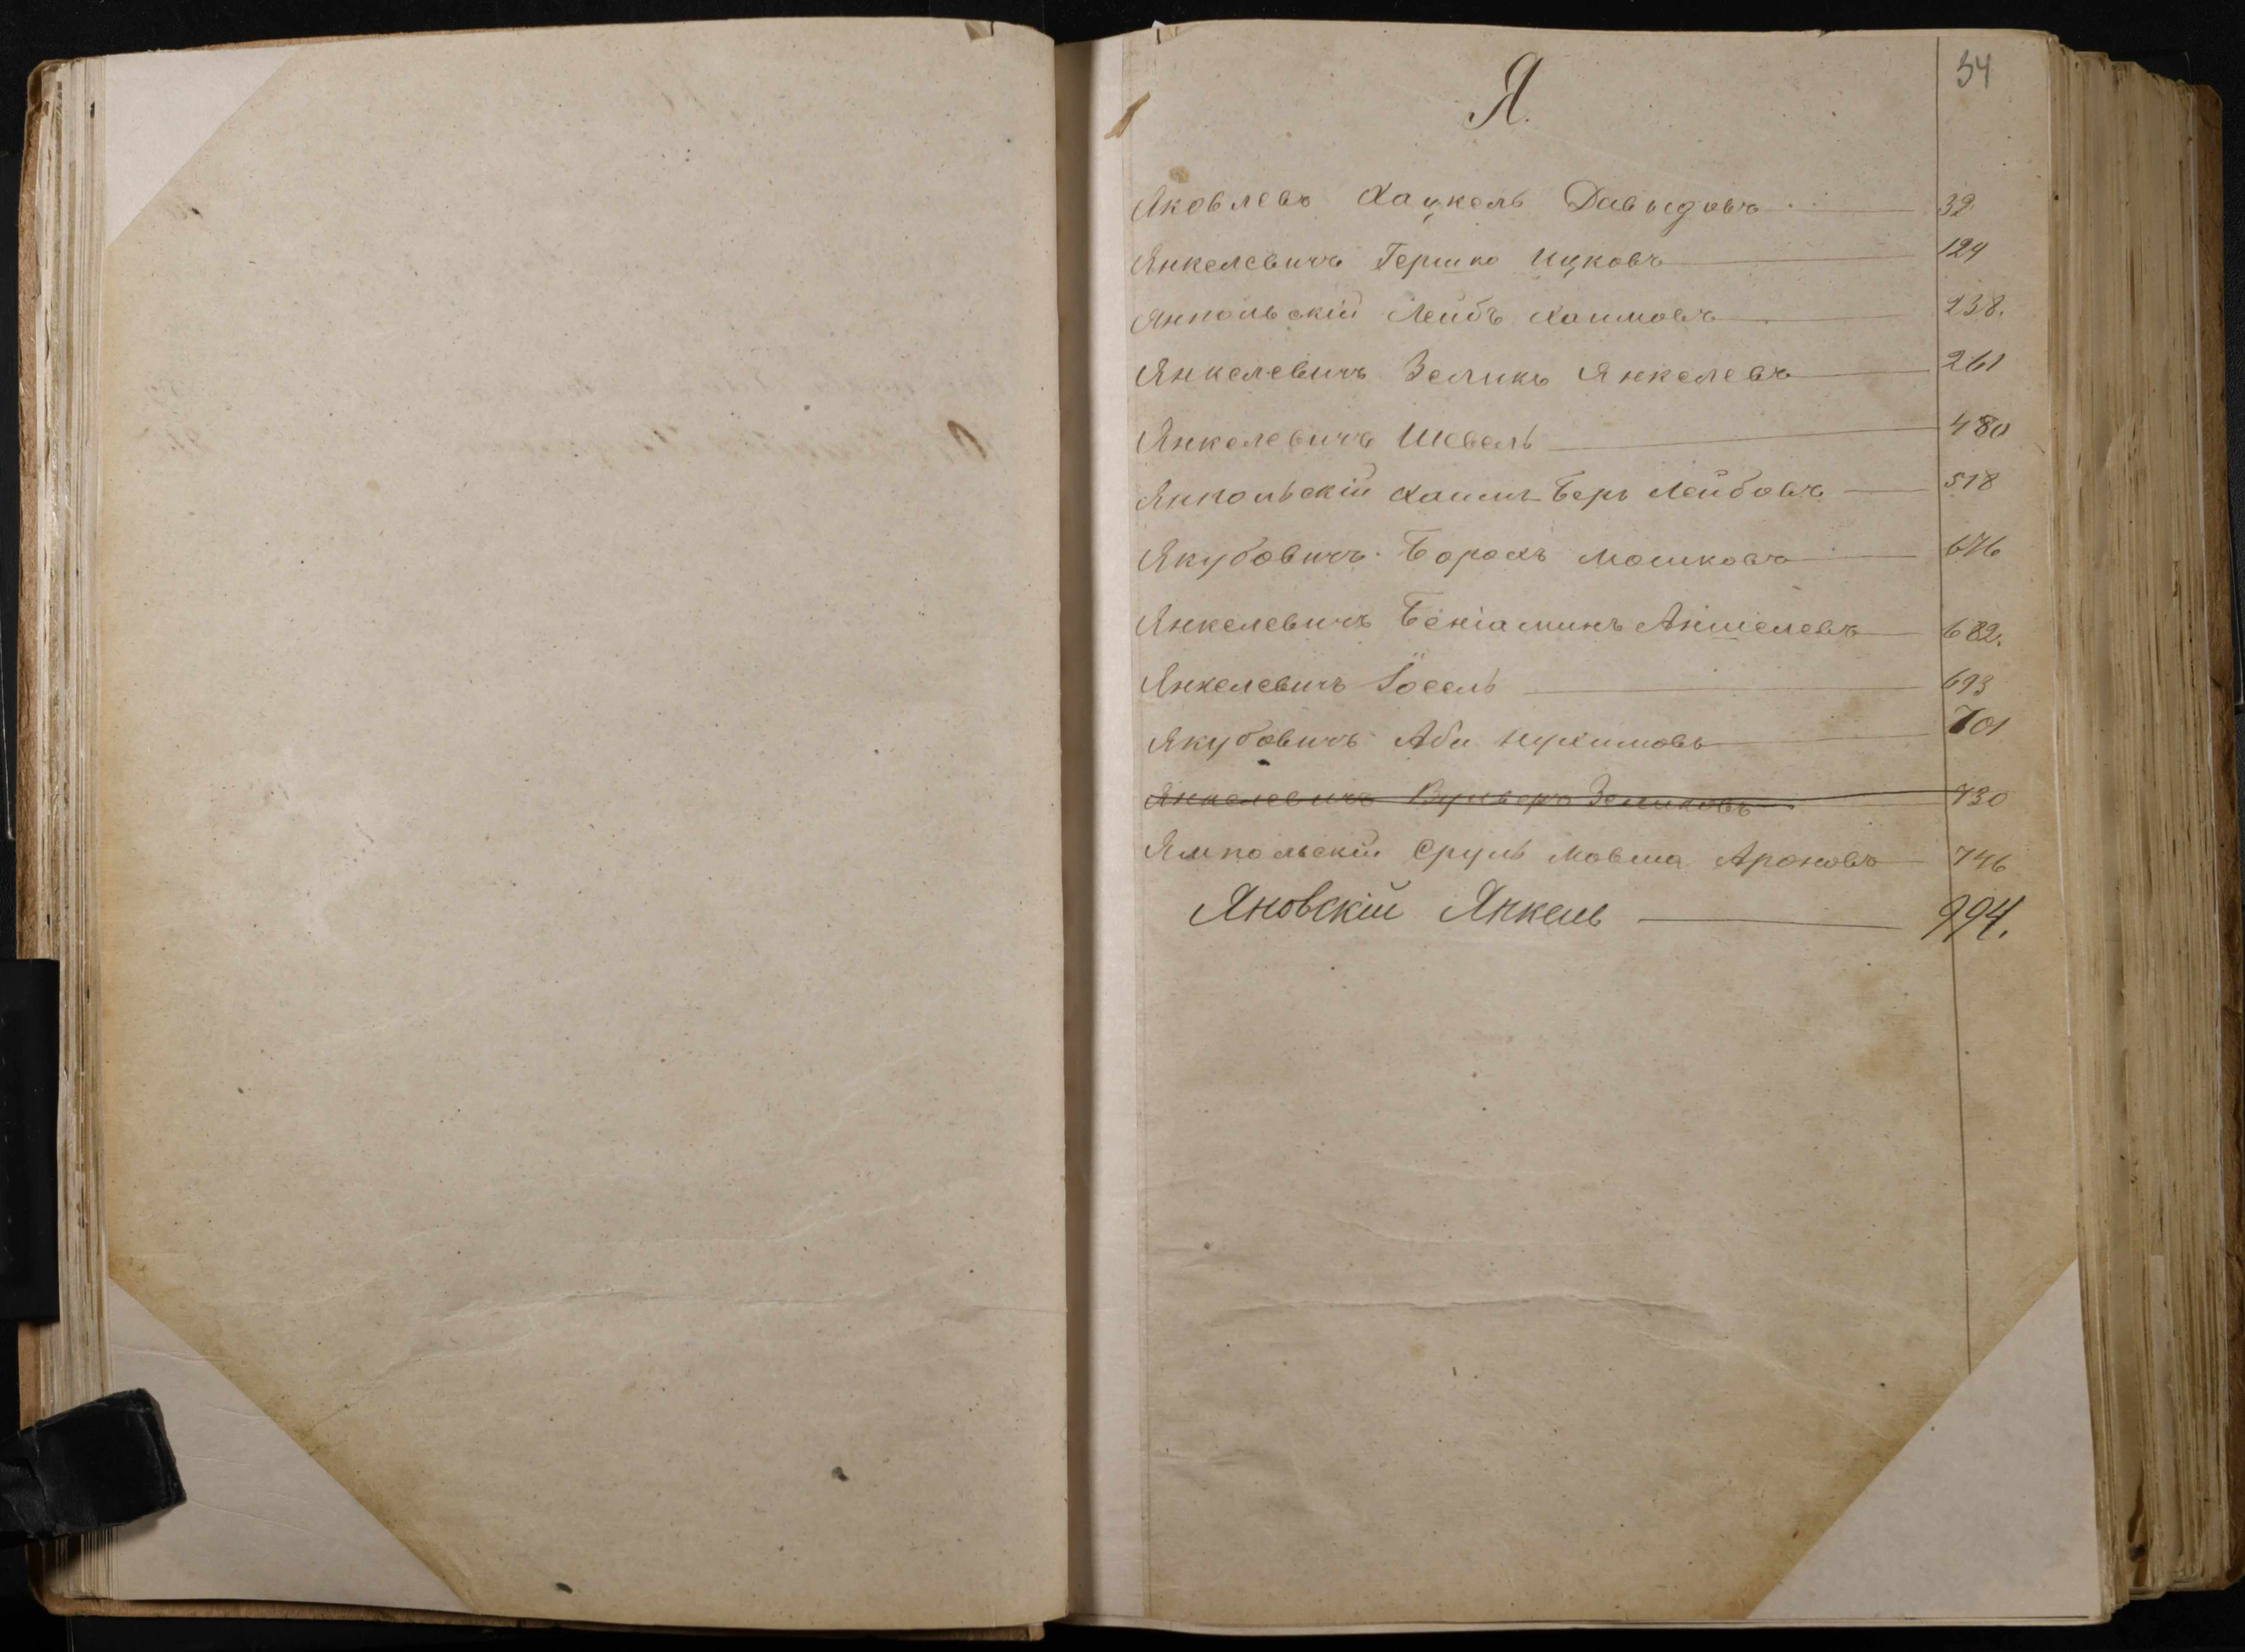 34
Я.
Яковлевъ Хацкель Давыдовъ 32
Янкелевичъ Гершко Ицковъ 124
Янпольскій Лейбъ Хаимовъ 238.
Янкелевичъ Зеликъ Янкелевъ 261
Янкелевичъ Шевель 480
Янпольскій Хаимъ Беръ Лейбовъ 518
Якубовичъ Борохъ Мошковъ 676
Янкелевичъ Беніаминъ Аншелевъ 682.
Янкелевичъ Іосель 693
Якубовичъ Аба Нухимовъ 701
Янкелевичъ Зеликовъ 730
Ямпольскій Сруль Мовша Ароновъ 746
Яновскій Янкель 994.